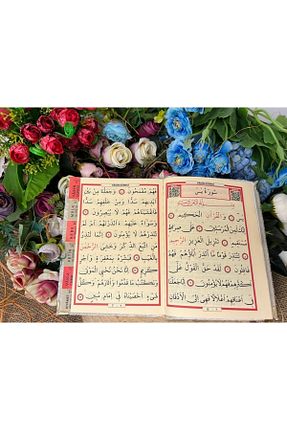 سُورَةُ يٰسٓ
بِسْمِ اللّٰهِ الرَّحْمٰنِ الرَّحِيمِ
يٰسٓ ۝ وَالْقُرْاٰنِ الْحَكِيمِ ۝
اِنَّكَ لَمِنَ الْمُرْسَلِينَ ۝ عَلٰى صِرَاطٍ
مُسْتَقِيمٍ ۝ تَنْزِيلَ الْعَزِيزِ الرَّحِيمِ ۝
لِتُنْذِرَ قَوْمًا مَٓا اُنْذِرَ اٰبَٓاؤُهُمْ فَهُمْ
غَافِلُونَ ۝ لَقَدْ حَقَّ الْقَوْلُ عَلٰٓى
اَكْثَرِهِمْ فَهُمْ لَا يُؤْمِنُونَ ۝ اِنَّا جَعَلْنَا
فِٓي اَعْنَاقِهِمْ اَغْلَالًا فَهِيَ اِلَى الْاَذْقَانِ
فَهُمْ مُقْمَحُونَ ۝ وَجَعَلْنَا مِنْ بَيْنِ
اَيْدِيهِمْ سَدًّا وَمِنْ خَلْفِهِمْ سَدًّا
فَاَغْشَيْنَاهُمْ فَهُمْ لَا يُبْصِرُونَ ۝
وَسَوَٓاءٌ عَلَيْهِمْ ءَاَنْذَرْتَهُمْ اَمْ لَمْ
تُنْذِرْهُمْ لَا يُؤْمِنُونَ ۝ اِنَّمَا تُنْذِرُ
مَنِ اتَّبَعَ الذِّكْرَ وَخَشِيَ الرَّحْمٰنَ
بِالْغَيْبِ فَبَشِّرْهُ بِمَغْفِرَةٍ وَاَجْرٍ
كَرِيمٍ ۝ اِنَّا نَحْنُ نُحْيِي الْمَوْتٰى
وَنَكْتُبُ مَا قَدَّمُوا وَاٰثَارَهُمْ وَكُلَّ
شَيْءٍ اَحْصَيْنَاهُ فِٓي اِمَامٍ مُبِينٍ ۝